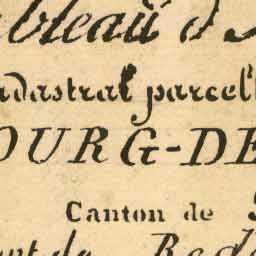 bleau d'
adastral parcel
OURG-DE
Canton de
nt de Red